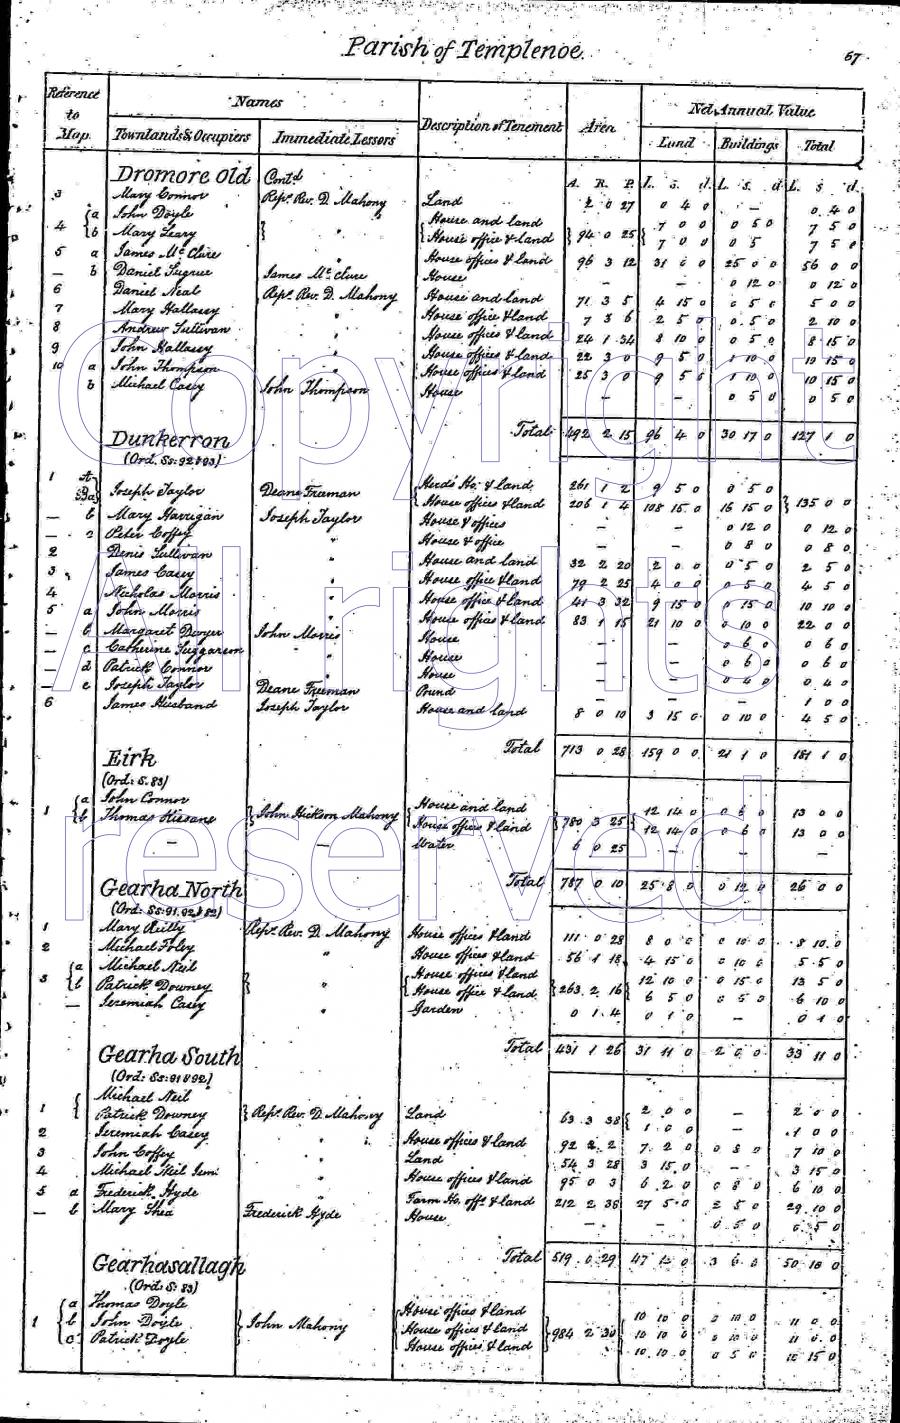 Parish of Templenoe.
67
Reference to Map. Names Description of Tenement Area Net Annual Value
Townlands & Occupiers Immediate Lessors Land Buildings Total
Dromore Old Contd A. R. P. L. s. d. L. s. d. L. s. d.
3 Mary Connor Reps. Rev. D. Mahony Land 2 0 27 0 4 0 — 0 4 0
4 { a John Doyle } " { House and land } 94 0 25 { 7 0 0 0 5 0 7 5 0
b Mary Leary House office & land 7 0 0 0 5 7 5 0
5 a James McClure " House offices & land 96 3 12 31 0 0 25 0 0 56 0 0
— b Daniel Sugrue James McClure House — — 0 12 0 0 12 0
6 Daniel Neal Reps. Rev. D. Mahony House and land 71 3 5 4 15 0 0 5 0 5 0 0
7 Mary Hallassy " House office & land 7 3 6 2 5 0 0 5 0 2 10 0
8 Andrew Sullivan " House offices & land 24 1 34 8 10 0 0 5 0 8 15 0
9 John Hallassy " House offices & land 22 3 0 9 5 0 1 10 0 10 15 0
10 a John Thompson " House offices & land 25 3 0 9 5 0 1 10 0 10 15 0
b Michael Casey John Thompson House — — 0 5 0 0 5 0
Total 492 2 15 96 4 0 30 17 0 127 1 0
Dunkerron
(Ord. Ss: 92 & 93)
1 A } Joseph Taylor Deane Freeman { Herds Ho. & land 261 1 2 9 5 0 0 5 0 } 135 0 0
Ba House offices & land 206 1 4 108 15 0 16 15 0
— b Mary Harrigan Joseph Taylor House & offices — — 0 12 0 0 12 0
— Peter Coffey " House & office — — 0 8 0 0 8 0
2 Denis Sullivan " House and land 32 2 20 2 0 0 0 5 0 2 5 0
3 James Casey " House office & land 79 2 25 4 0 0 0 5 0 4 5 0
4 Nicholas Morris " House office & land 41 3 32 9 15 0 0 15 0 10 10 0
5 a John Morris " House offices & land 83 1 15 21 10 0 0 10 0 22 0 0
— b Margaret Dwyer John Morris House — — 0 6 0 0 6 0
— c Catherine Suggarson " House — — 0 6 0 0 6 0
— d Patrick Connor " House — — 0 4 0 0 4 0
— e Joseph Taylor Deane Freeman Pound — — — 1 0 0
6 James Husband Joseph Taylor House and land 8 0 10 3 15 0 0 10 0 4 5 0
Total 713 0 28 159 0 0 21 1 0 181 1 0
Eirk
(Ord: S. 83)
1 { a John Connor } John Hickson Mahony { House and land } 780 3 25 { 12 14 0 0 6 0 13 0 0
b Thomas Kissane House offices & land 12 14 0 0 6 0 13 0 0
— — Water 6 0 25 — — —
Total 787 0 10 25 8 0 0 12 0 26 0 0
Gearha North
(Ord: Ss: 91, 92 & 82)
1 Mary Reilly Reps. Rev. D. Mahony House offices & land 111 0 28 8 0 0 0 10 0 8 10 0
2 Michael Foley " House offices & land 56 1 18 4 15 0 0 10 0 5 5 0
3 { a Michael Neil } " { House offices & land } 263 2 16 { 12 10 0 0 15 0 13 5 0
b Patrick Downey House office & land 6 5 0 0 5 0 6 10 0
— Jeremiah Casey " Garden 0 1 4 0 1 0 — 0 1 0
Total 431 1 26 31 11 0 2 0 0 33 11 0
Gearha South
(Ord: Ss: 91 & 92)
1 { Michael Neil } Reps. Rev. D. Mahony Land 63 3 38 { 2 0 0 — 2 0 0
Patrick Downey 1 0 0 — 1 0 0
2 Jeremiah Casey " House offices & land 92 2 2 7 2 0 0 8 0 7 10 0
3 John Coffey " Land 54 3 28 3 15 0 — 3 15 0
4 Michael Neil Senr. " House offices & land 95 0 3 6 2 0 0 8 0 6 10 0
5 a Frederick Hyde " Farm Ho. offs. & land 212 2 38 27 5 0 2 5 0 29 10 0
— b Mary Shea Frederick Hyde House — — 0 5 0 0 5 0
Total 519 0 29 47 4 0 3 6 0 50 10 0
Gearhasallagh
(Ord: S: 83)
1 { a Thomas Doyle } John Mahony { House offices & land } 984 2 30 { 10 10 0 0 10 0 11 0 0
b John Doyle House offices & land 10 10 0 0 10 0 11 0 0
c Patrick Doyle House offices & land 10 10 0 0 5 0 10 15 0
Copyright
All rights
reserved